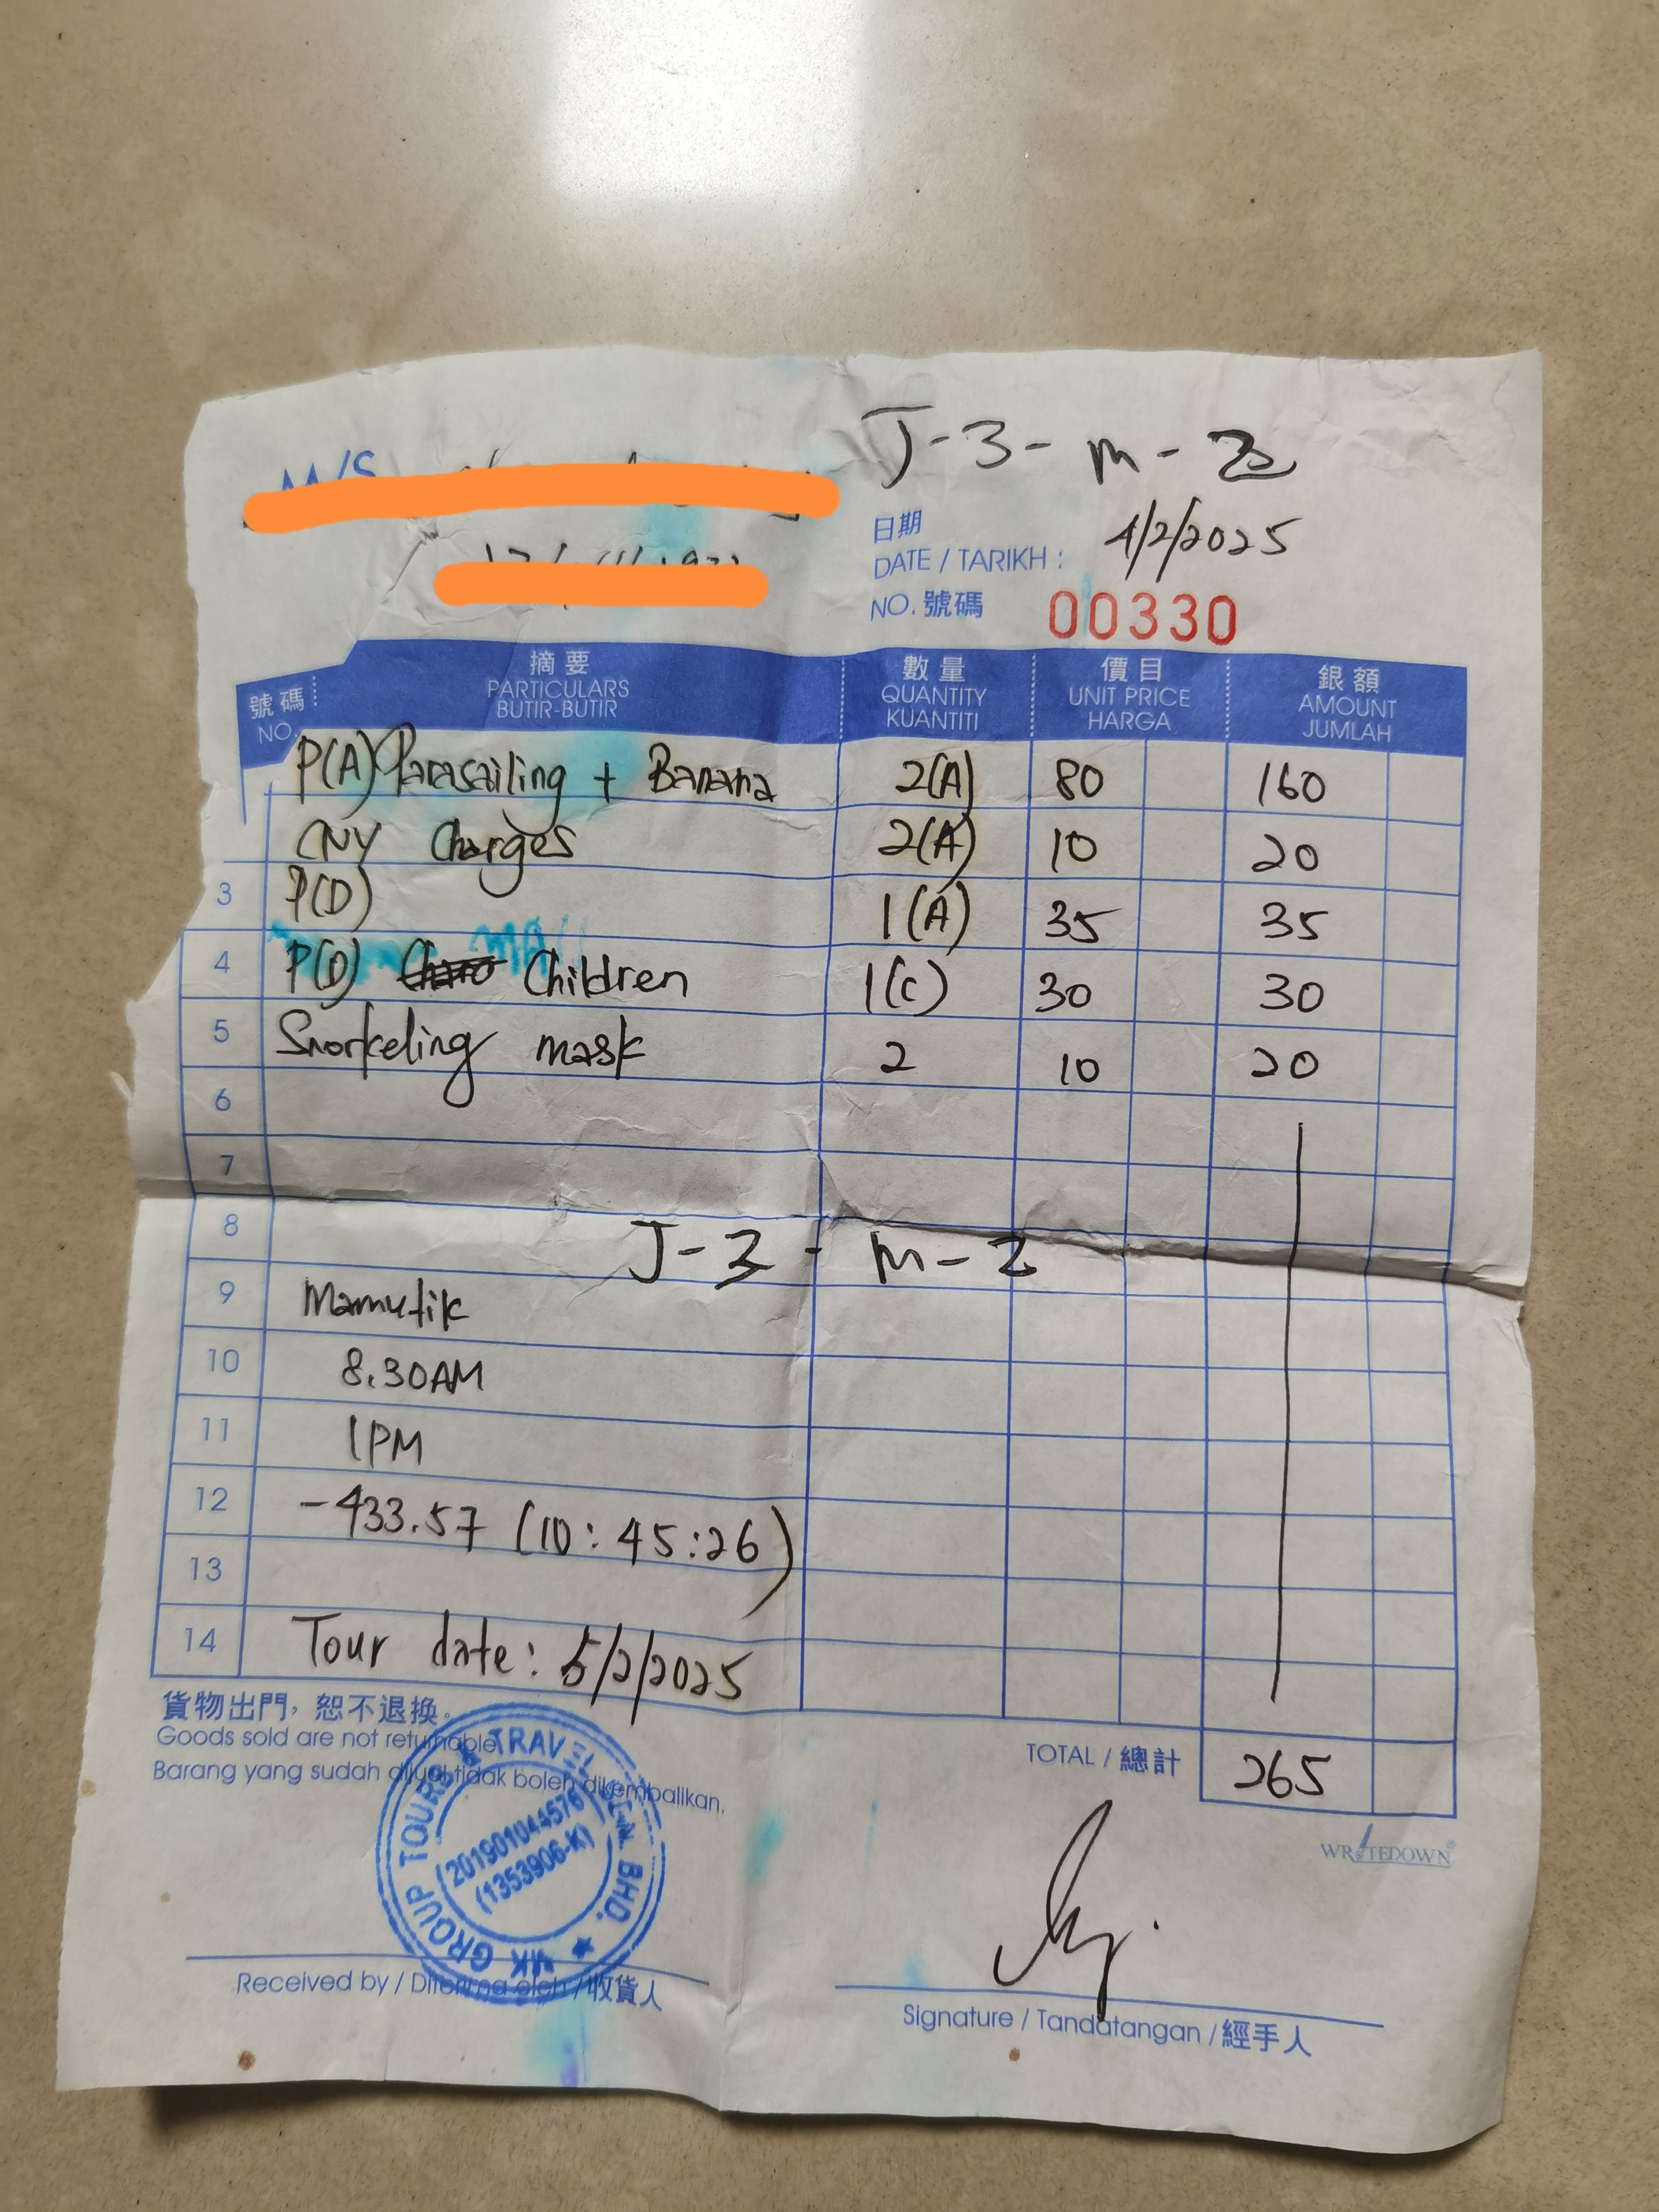 M/S
J-3-m-2
日期
DATE / TARIKH : 4/2/2025
NO. 號碼 00330
號碼 NO. 摘要 PARTICULARS BUTIR-BUTIR 數量 QUANTITY KUANTITI 價目 UNIT PRICE HARGA 銀額 AMOUNT JUMLAH
P(A) Parasailing + Banana 2(A) 80 160
CNY Charges 2(A) 10 20
3 P(D) 1(A) 35 35
4 P(D) Children 1(C) 30 30
5 Snorkeling mask 2 10 20
6
7
8 J-3-m-2
9 Mamutik
10 8.30AM
11 1PM
12 -433.57 (10:45:26)
13
14 Tour date: 5/2/2025
貨物出門，恕不退換。
Goods sold are not returnable
Barang yang sudah dijual tidak boleh dikembalikan.
TOTAL / 總計 265
WRITEDOWN
MK GROUP TOURS & TRAVEL SDN. BHD.
(201901044576)
(1353906-K)
Received by / Diterima oleh / 收貨人
Signature / Tandatangan / 經手人